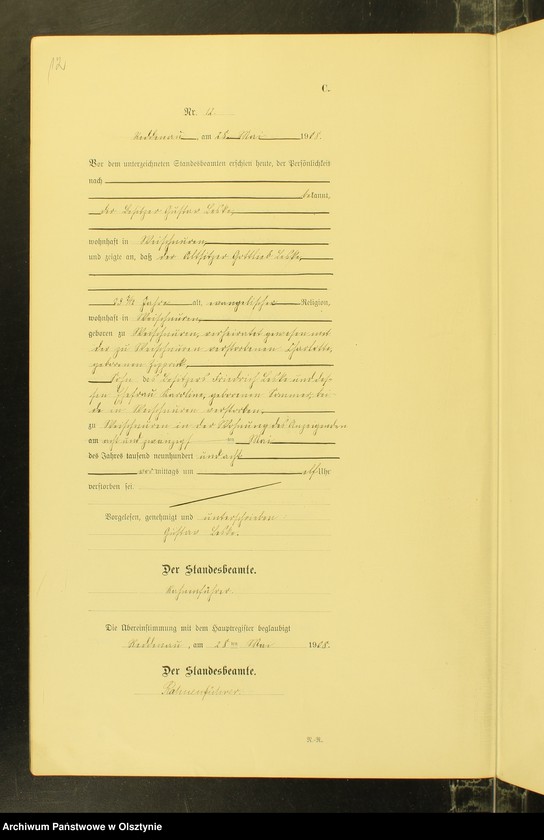 12
C.
Nr. 12.
Reddenau, am 28. Mai 1908.
Vor dem unterzeichneten Standesbeamten erschien heute, der Persönlichkeit
nach
bekannt,
der Besitzer Gustav Leske,
wohnhaft in
und zeigte an, daß der Altsitzer Gottlieb Leske,
83 1/2 Jahre alt, evangelischer Religion,
wohnhaft in
geboren zu verheiratet gewesen mit
der zu verstorbenen Charlotte,
geborenen
Sohn des Besitzers Friedrich Leske und des-
sen Ehefrau Karoline, geborenen bei-
de in verstorben,
zu in der Wohnung des Anzeigenden
am acht und zwanzigsten Mai
des Jahres tausend neunhundert und acht
vormittags um elf Uhr
verstorben sei.
Vorgelesen, genehmigt und unterschrieben
Gustav Leske.
Der Standesbeamte.
Die Übereinstimmung mit dem Hauptregister beglaubigt
Reddenau, am 28ten Mai 1908.
Der Standesbeamte.
N.-R.
Archiwum Państwowe w Olsztynie